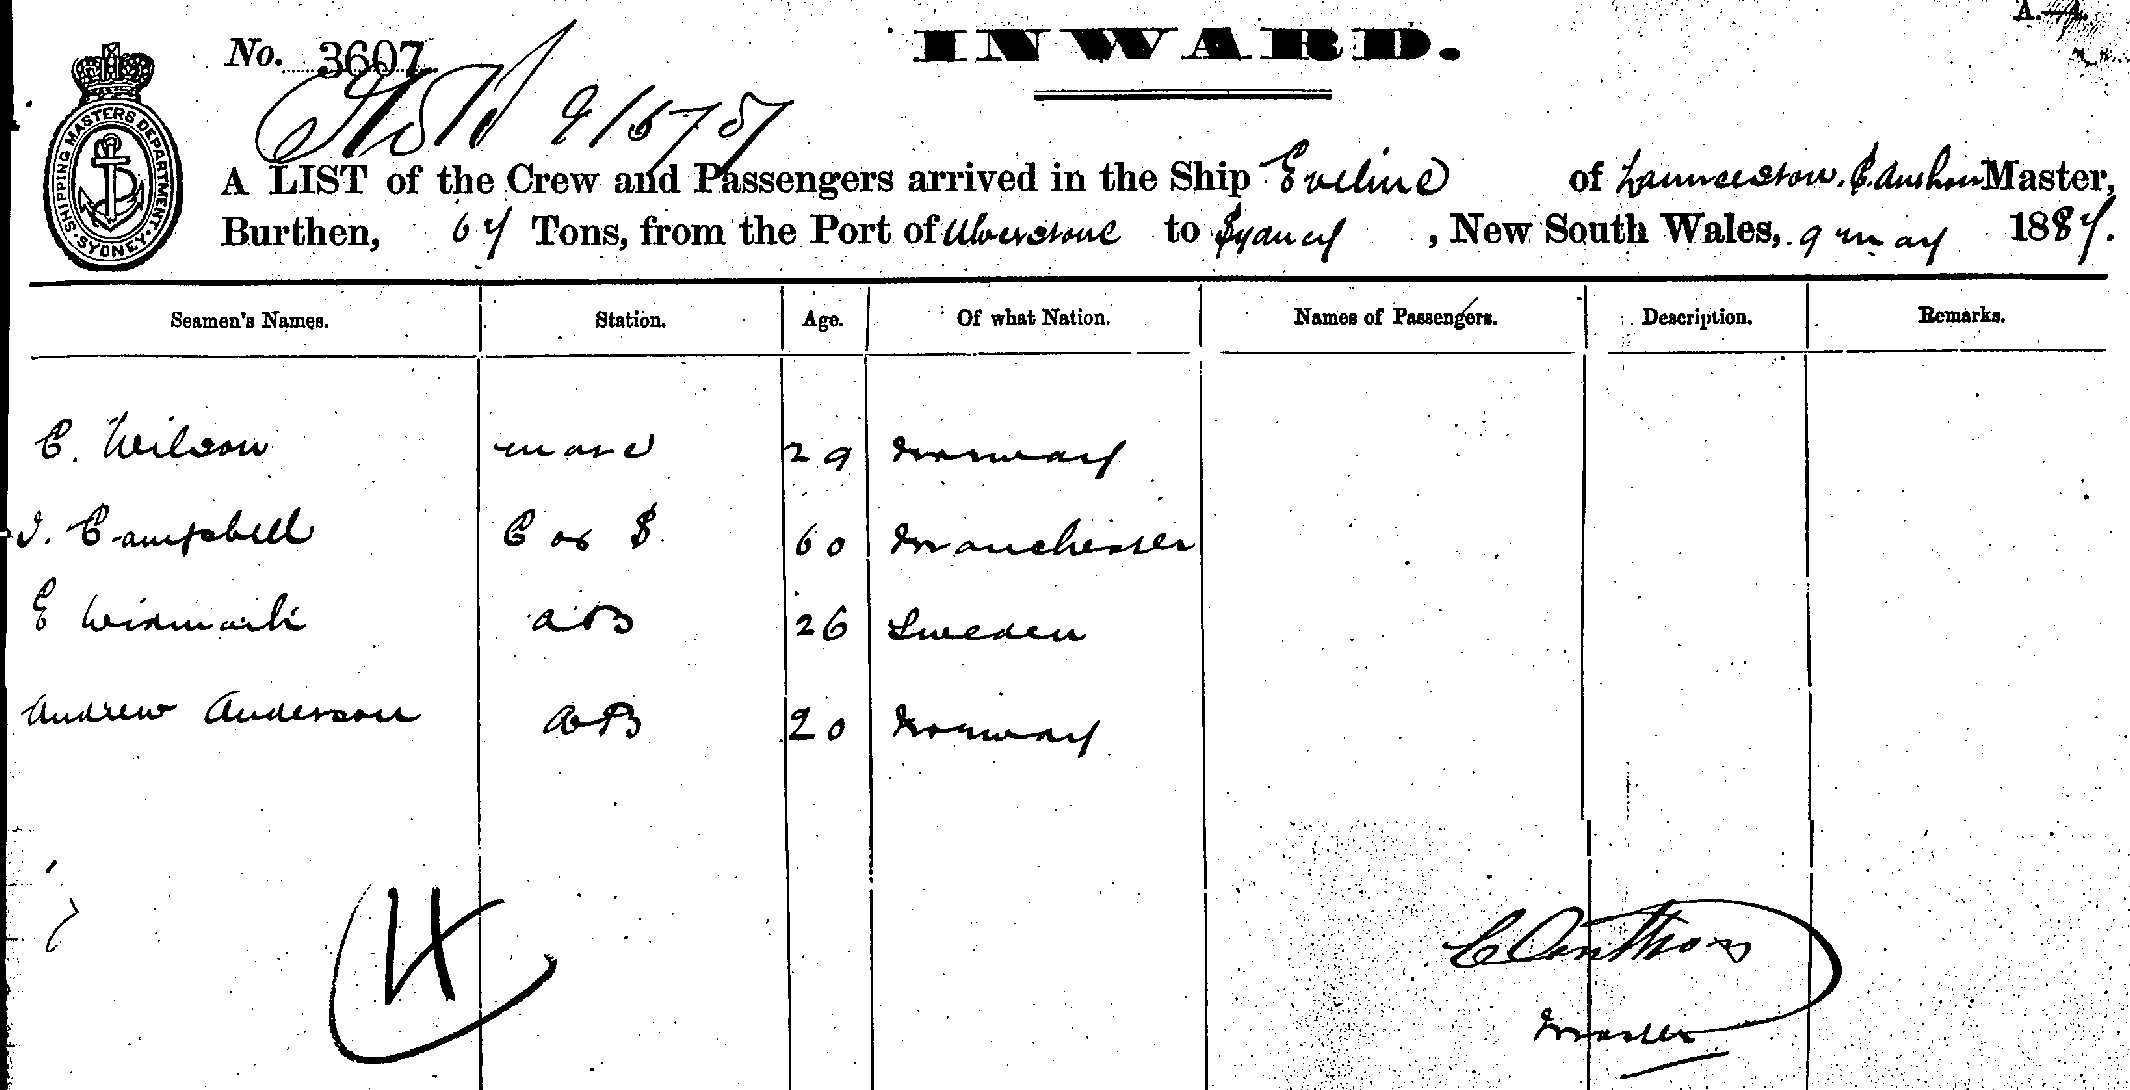 No. 3607
INWARD.
SHIPPING MASTERS DEPARTMENT. SYDNEY.
A LIST of the Crew and Passengers arrived in the Ship Eveline of Launceston. C. Anthon Master,
Burthen, 67 Tons, from the Port of Ulverstone to Sydney, New South Wales, 9 may 1887.
Seamen's Names. Station. Age. Of what Nation. Names of Passengers. Description. Remarks.
C. Wilson mate 29 Norway
J. Campbell C & S 60 Manchester
E Widmark AB 26 Sweden
Andrew Anderson AB 20 Norway
4
C Anthon
Master